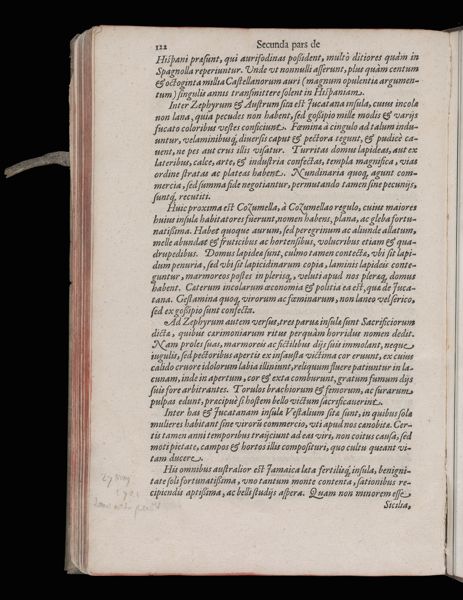 122 Secunda pars de
Hispani præsunt, qui aurifodinas possident, multò ditiores quàm in
Spagnolla reperiuntur. Vnde vt nonnulli asserunt, plus quàm centum
& octoginta millia Castellanorum auri (magnum opulentiæ argumen-
tum) singulis annis transmittere solent in Hispaniam.
Inter Zephyrum & Austrum sita est Jucatana insula, cuius incolæ
non lana, quia pecudes non habent, sed gossipio mille modis & varijs
fucato coloribus vestes conficiunt. Fœminæ à cingulo ad talum indu-
untur, velaminibusq́; diversis caput & pectora tegunt, & pudicè ca-
vent, ne pes aut crus illis visatur. Turritas domus lapideas, aut ex
lateribus, calce, arte, & industria confectas, templa magnifica, vias
ordine stratas ac plateas habent. Nundinaria quoq; agunt com-
mercia, sed summa fide negotiantur, permutando tamen sine pecunijs,
suntq́; recutiti.
Huic proxima est Cozumella, à Cozumellao regulo, cuius maiores
huius insulæ habitatores fuerunt, nomen habens, plana, ac gleba fortu-
natissima. Habet quoque aurum, sed peregrinum ac aliunde allatum,
melle abundat & fruticibus ac hortensibus, volucribus etiam & qua-
drupedibus. Domus lapideæ sunt, culmo tamen contectæ, vbi sit lapi-
dum penuria, sed vbi sit lapicidinarum copia, laminis lapideis conte-
guntur, marmoreos postes in plerisq́; veluti apud nos pleræq; domus
habent. Cæterum incolarum œconomia & politia ea est, quæ de Juca-
tana. Gestamina quoq; virorum ac fœminarum, non laneo vel serico,
sed ex gossipio sunt confecta.
Ad Zephyrum autem versus, tres parvæ insulæ sunt Sacrificiorum
dictæ, quibus cærimoniarum ritus perquàm horridus nomen dedit.
Nam proles suas, marmoreis ac fictilibus dijs suis immolant, neque
iugulis, sed pectoribus apertis ex infausta victima cor eruunt, ex cuius
calido cruore idolorum labia illiniunt, reliquum fluere patiuntur in la-
cunam, inde in apertum, cor & exta comburunt, gratum fumum dijs
suis fore arbitrantes. Torulos brachiorum & femorum, ac surarum
pulpas edunt, præcipuè si hostem bello victum sacrificaverint.
Inter has & Jucatanam insulæ Vestalium sitæ sunt, in quibus solæ
mulieres habitant sine virorũ commercio, vti apud nos canobitæ. Cer-
tis tamen anni temporibus traijciunt ad eas viri, non coitus causa, sed
moti pietate, campos & hortos illis compositurì, quo cultu queant vi-
tam ducere.
His omnibus australior est Jamaica læta fertilisq́; insula, benigni-
tate soli fortunatissima, vno tantum monte contenta, sationibus re-
cipiendis aptissima, ac belli studijs aspera. Quam non minorem esse
Sicilia,